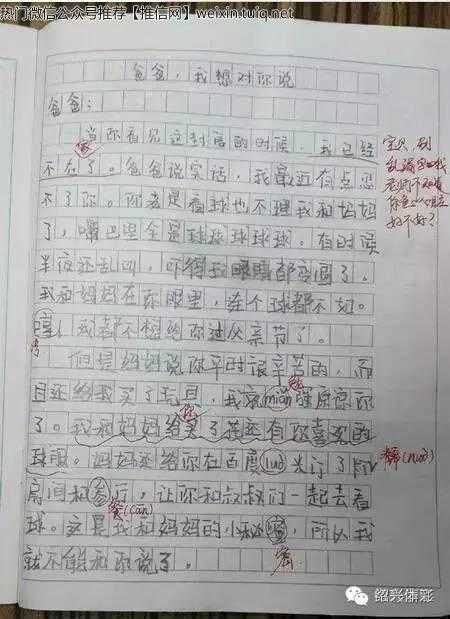 热门微信公众号推荐【推信网】weixin.tuiq.net
爸爸，我想对你说
爸爸：
当你看见这封信的时候，我已经
家
不在了。爸爸说实话，我最近有点忍
不了你。你老是看球也不理我和妈妈
了，嘴巴里全是球球球球球。有时候
半夜还乱叫，吓得我眼睛都变圆了，
我和妈妈在你眼里，连个球都不如。
哼！我都不想给你过父亲节了。
但是妈妈说你平时很辛苦的，而
且还给我买了玩具，我就mian强原谅你
勉
了。我和妈妈给买了花还有你喜欢的
你
球服。妈妈还给你在百度luo米订了
糯(nuò)
房间和参厅，让你和叔叔们一起去看
餐(cān)
球。这是我和妈妈的小秘密，所以我
密
就不能和你说了。
绍兴体彩